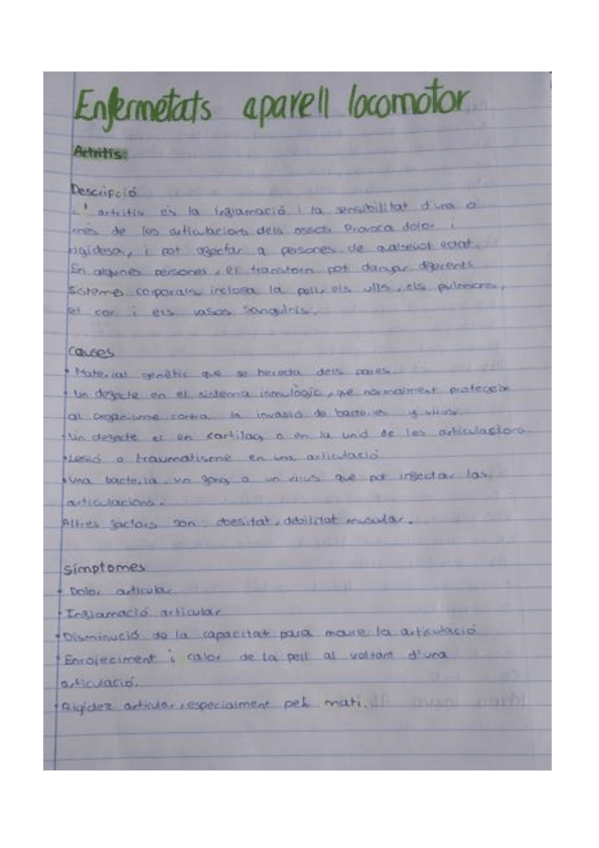 Enfermetats aparell locomotor
Artritis
Descripció
L'artritis és la inflamació i la sensibilitat d'una o
més de les articulacions dels ossos. Provoca dolor i
rigidesa, i pot afectar a persones de qualsevol edat.
En algunes persones, el transtorn pot danyar diferents
sistemes corporals, inclosa la pell, els ulls, els pulmons,
el cor i els vasos sanguinis.
Causes
• Material genètic que se hereda dels pares.
• Un defecte en el sistema inmulògic, que normalment protegeix
al organisme contra la invasió de bacteries y virus.
Un defecte al en cartílag o en la unid de les articulacions
• Lesió o traumatisme en una articulació
• Una bacteria, un fong o un virus que pot infectar las
articulacions.
Altres factors son: obesitat, debilitat muscular.
Símptomes
• Dolor articular
• Inflamació articular
• Disminució de la capacitat para moure la articulació
• Enrojeciment i calor de la pell al voltant d'una
articulació.
• Rigidez articular, especialment pel matí.